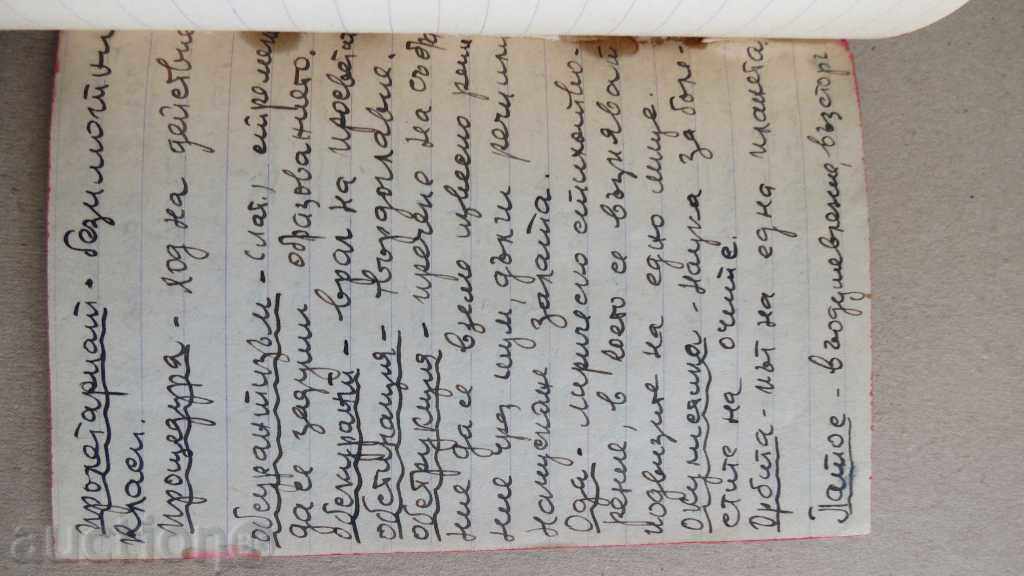 пролетарий - безимотни
класи.
процедура - ход на действие
обскурантизъм - (лат.) стремеж
да се задуши образованието.
обскурант - враг на просвета
обстинация - твърдоглавие.
обструкция - пречене на събра
ние да се вземе известно реше
ние чрез шум, дълги речи или
напускане залата.
Ода - лирическо стихотво-
рение, в което се възпяват
подвизите на едно лице.
окулистика - наука за боле-
стите на очите.
Орбита - път на една планета
Патос - въодушевление, възторг
auction